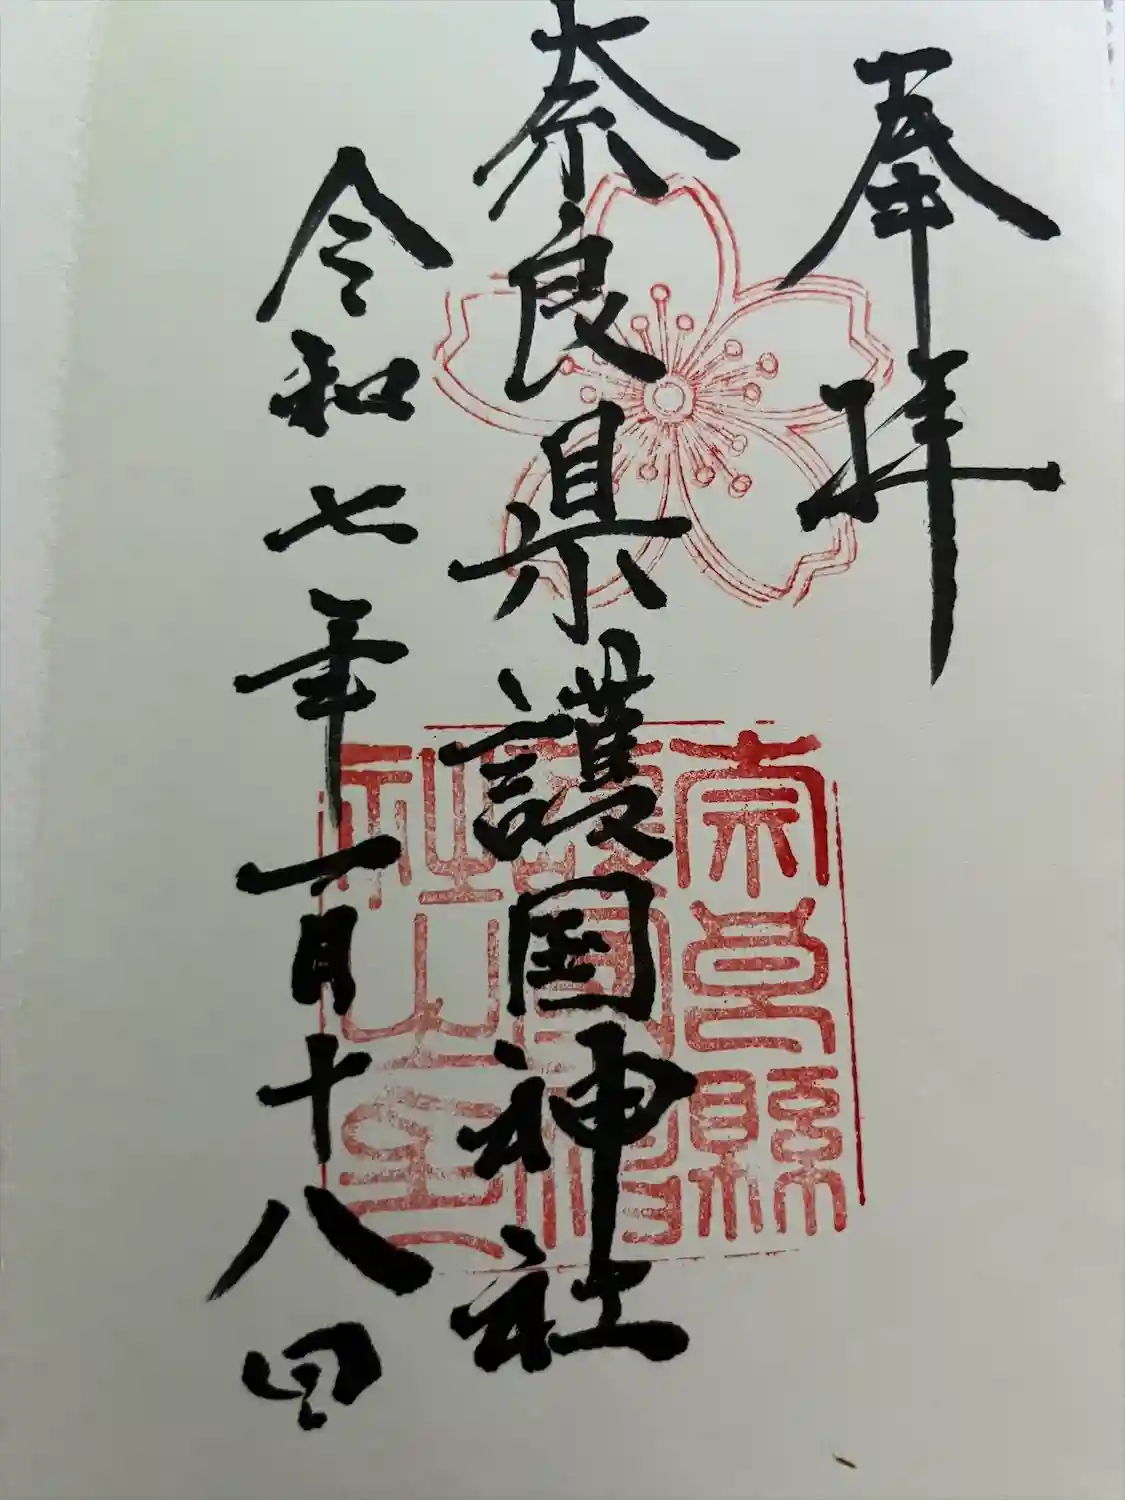 奉拝
奈良県護国神社
令和七年一月十八日
奈良縣
護國神
社之印